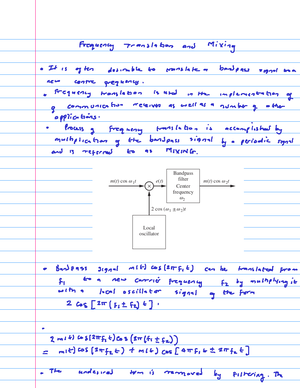 Frequency Translation and Mixing
• It is often desirable to translate a bandpass signal to a
new centre frequency.
• Frequency translation is used in the implementation of
communication receivers as well as a number of other
applications.
• Process of frequency translation is accomplished by
multiplication of the bandpass signal by a periodic signal
and is referred to as MIXING.
m(t) cos ω₁t
e(t)
Bandpass
filter
Center
frequency
ω₂
m(t) cos ω₂t
2 cos (ω₁ ± ω₂)t
Local
oscillator
• Bandpass signal m(t) cos(2πf₁t) can be translated from
f₁ to a new carrier frequency f₂ by multiplying it
with a local oscillator signal of the form
2 cos [2π(f₁ ± f₂) t].
•
2 m(t) cos(2πf₁t) cos(2π(f₁ ± f₂))
= m(t) cos(2πf₂t) + m(t) cos[4πf₁t ± 2πf₂t]
• The undesired term is removed by filtering. The